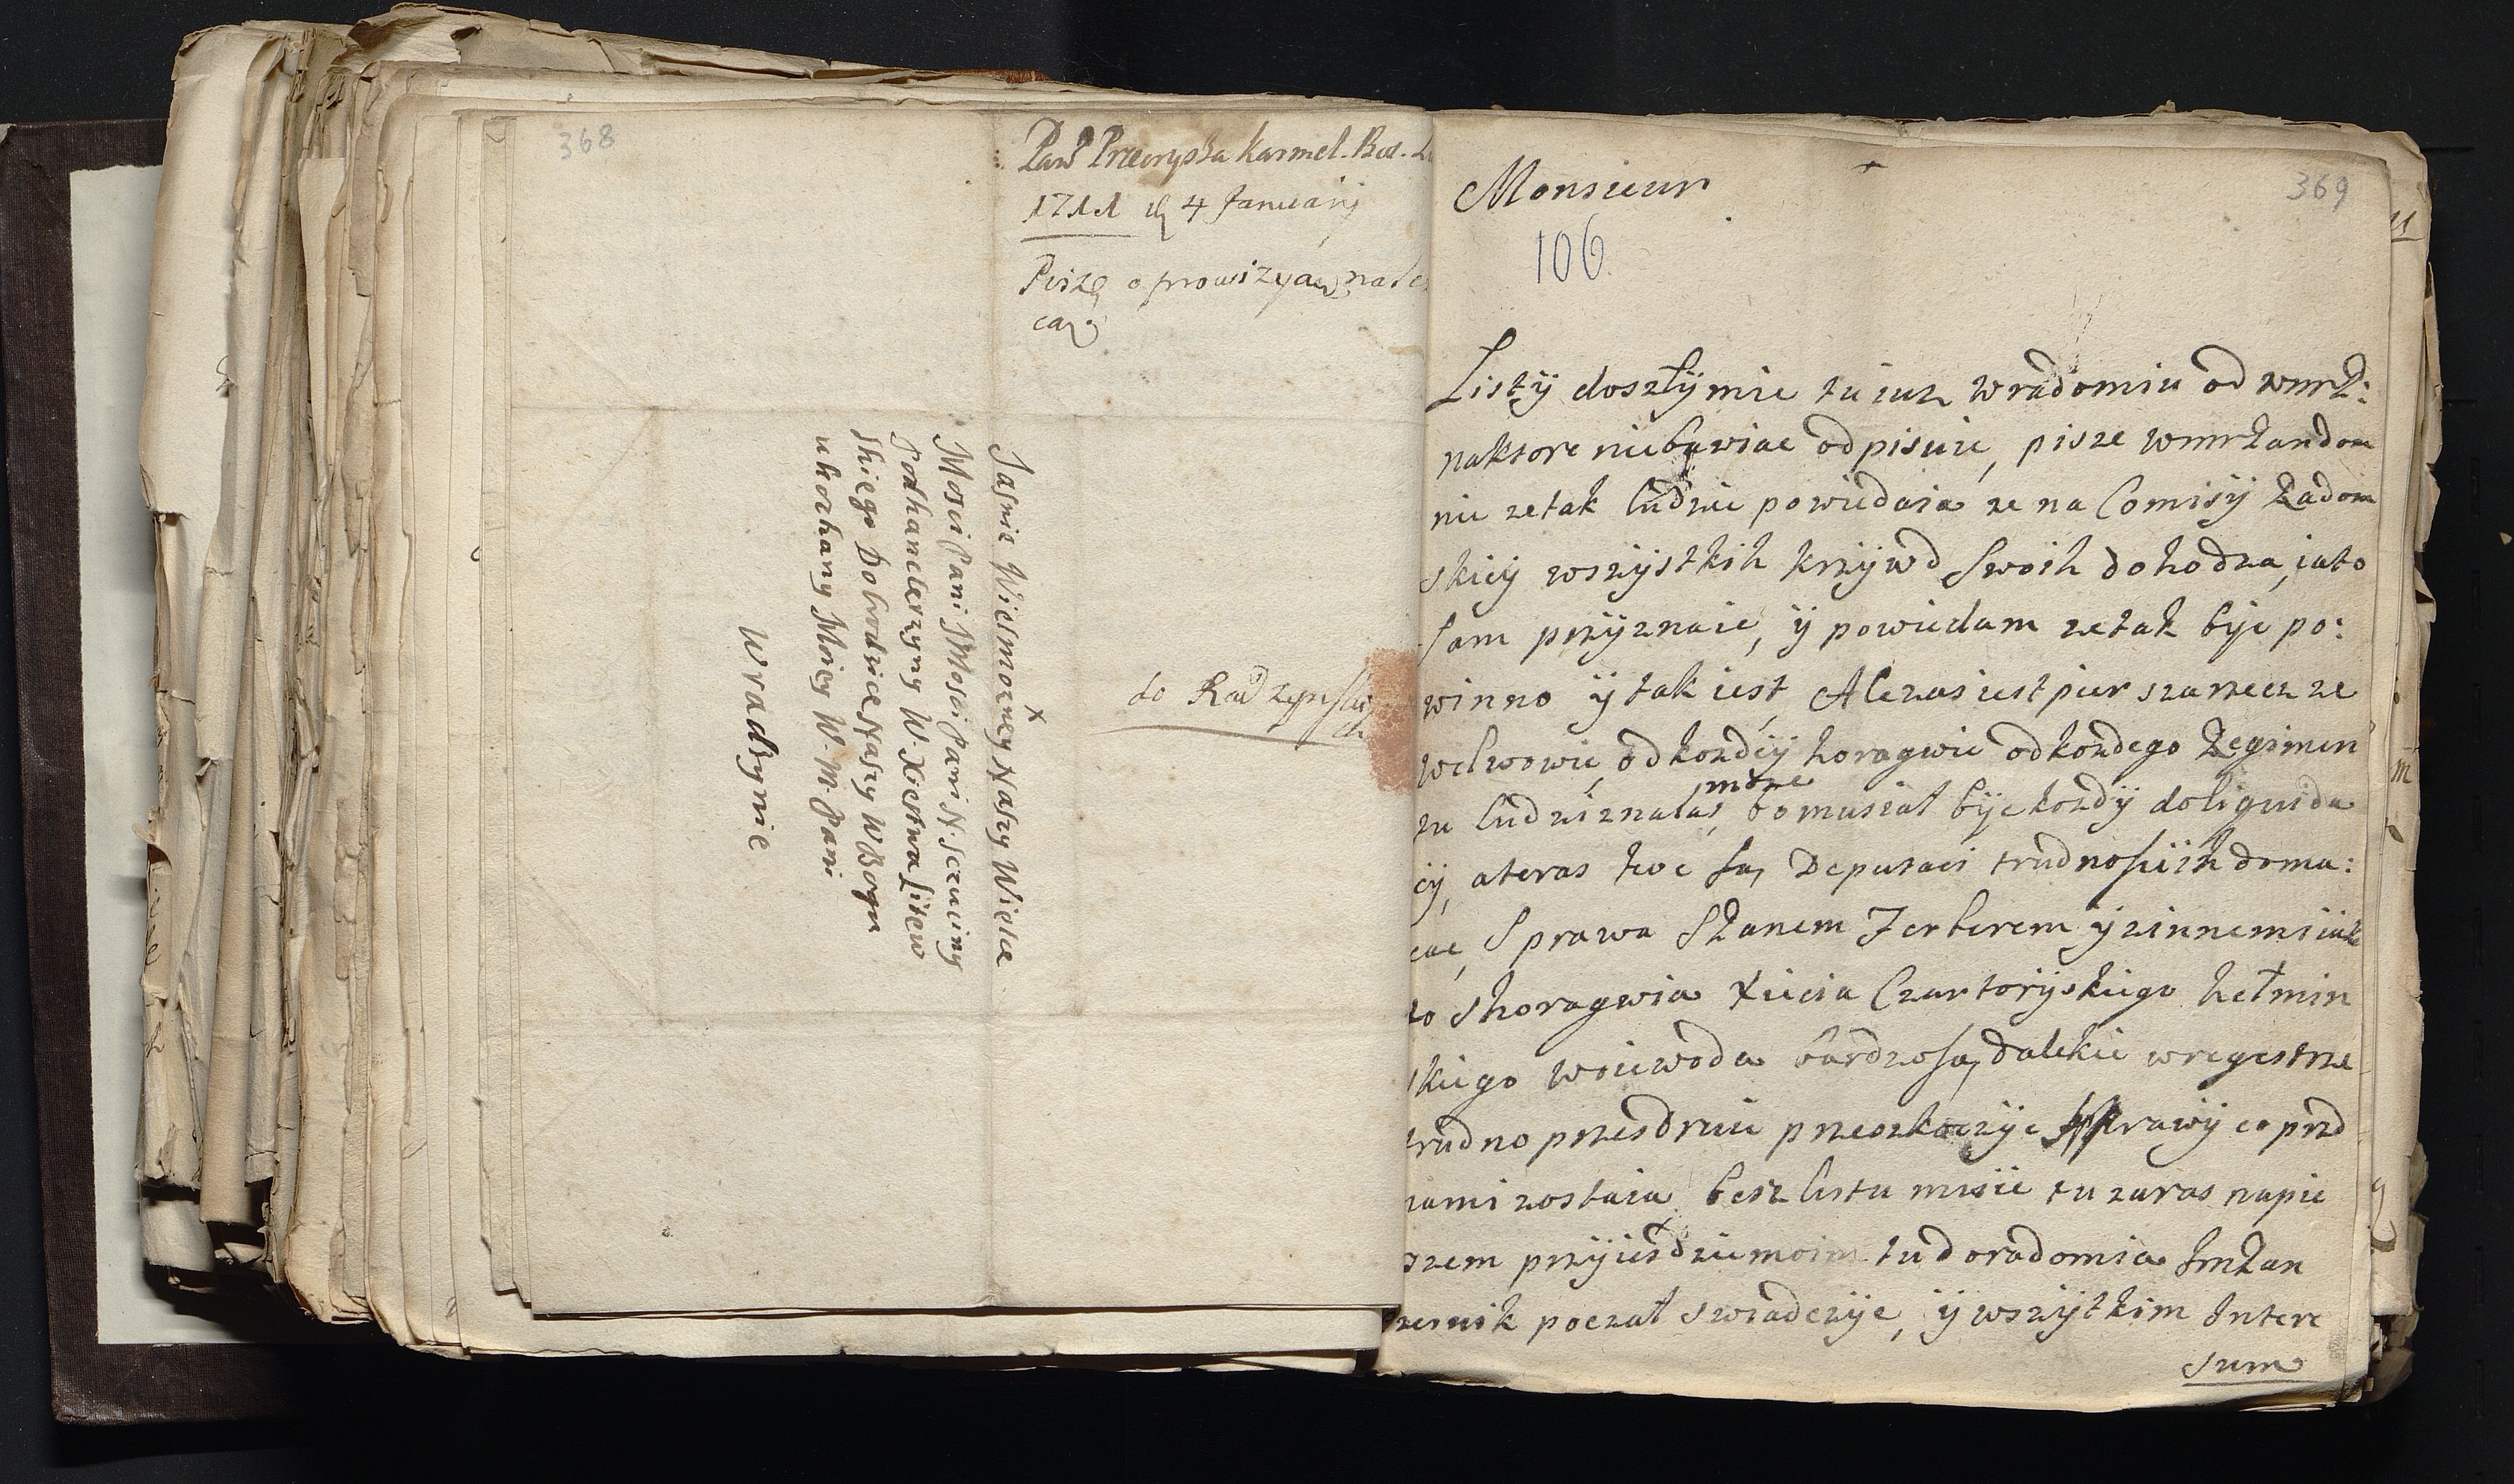 368
1711 4 Januarij
Piszę o prowizyą
cą
do Radzyn
Jasnie Wielmozney Naszy Wielce
Mosci Pani Mosci Pani N. Szczuciny
Podkanclerzyny W. Xiestwa Litew
skiego Dobrodzice Naszy W Bogu
ukochany Moiey W. M. Pani
W radzynie
369
Monsieur
106
Listÿ doszłÿ mie tu iusz w radomiu od wmP:
naktore niebawiac odpisuie, pisze wmPan do
nie ze tak ludzie powiedaia ze na Comisÿ Radom
skieÿ wszÿstkih krzÿwd swoih dohodza, iato
sam przÿznaie, ÿ powiedam ze tak bÿc po:
winno ÿ tak iest, Ale zas iest pierszarzecz ze
welwowie od kozdeÿ horagwie od kozdego Regimen
tu ludzi znalas moze bo musiał bÿc kozdÿ do liquida
cÿ, a teras hoc sa, Deputaci trudno sie ih doma:
cac, Sprawa SPanem Ferberem ÿ zinnemi iak
to Shoragwia Xiecia Czartorÿskiego hełmin
skiego woiewoda bardzo sa, dalekie wregestrze
trudno przesdruie przeszkoczÿc sprawÿ co przd
nami zostaia, besz listu
szem przÿiesdzie moim tu do radomia ImPan
czesnik poczał swiadczÿc, ÿ wszÿtkim Intere
sum